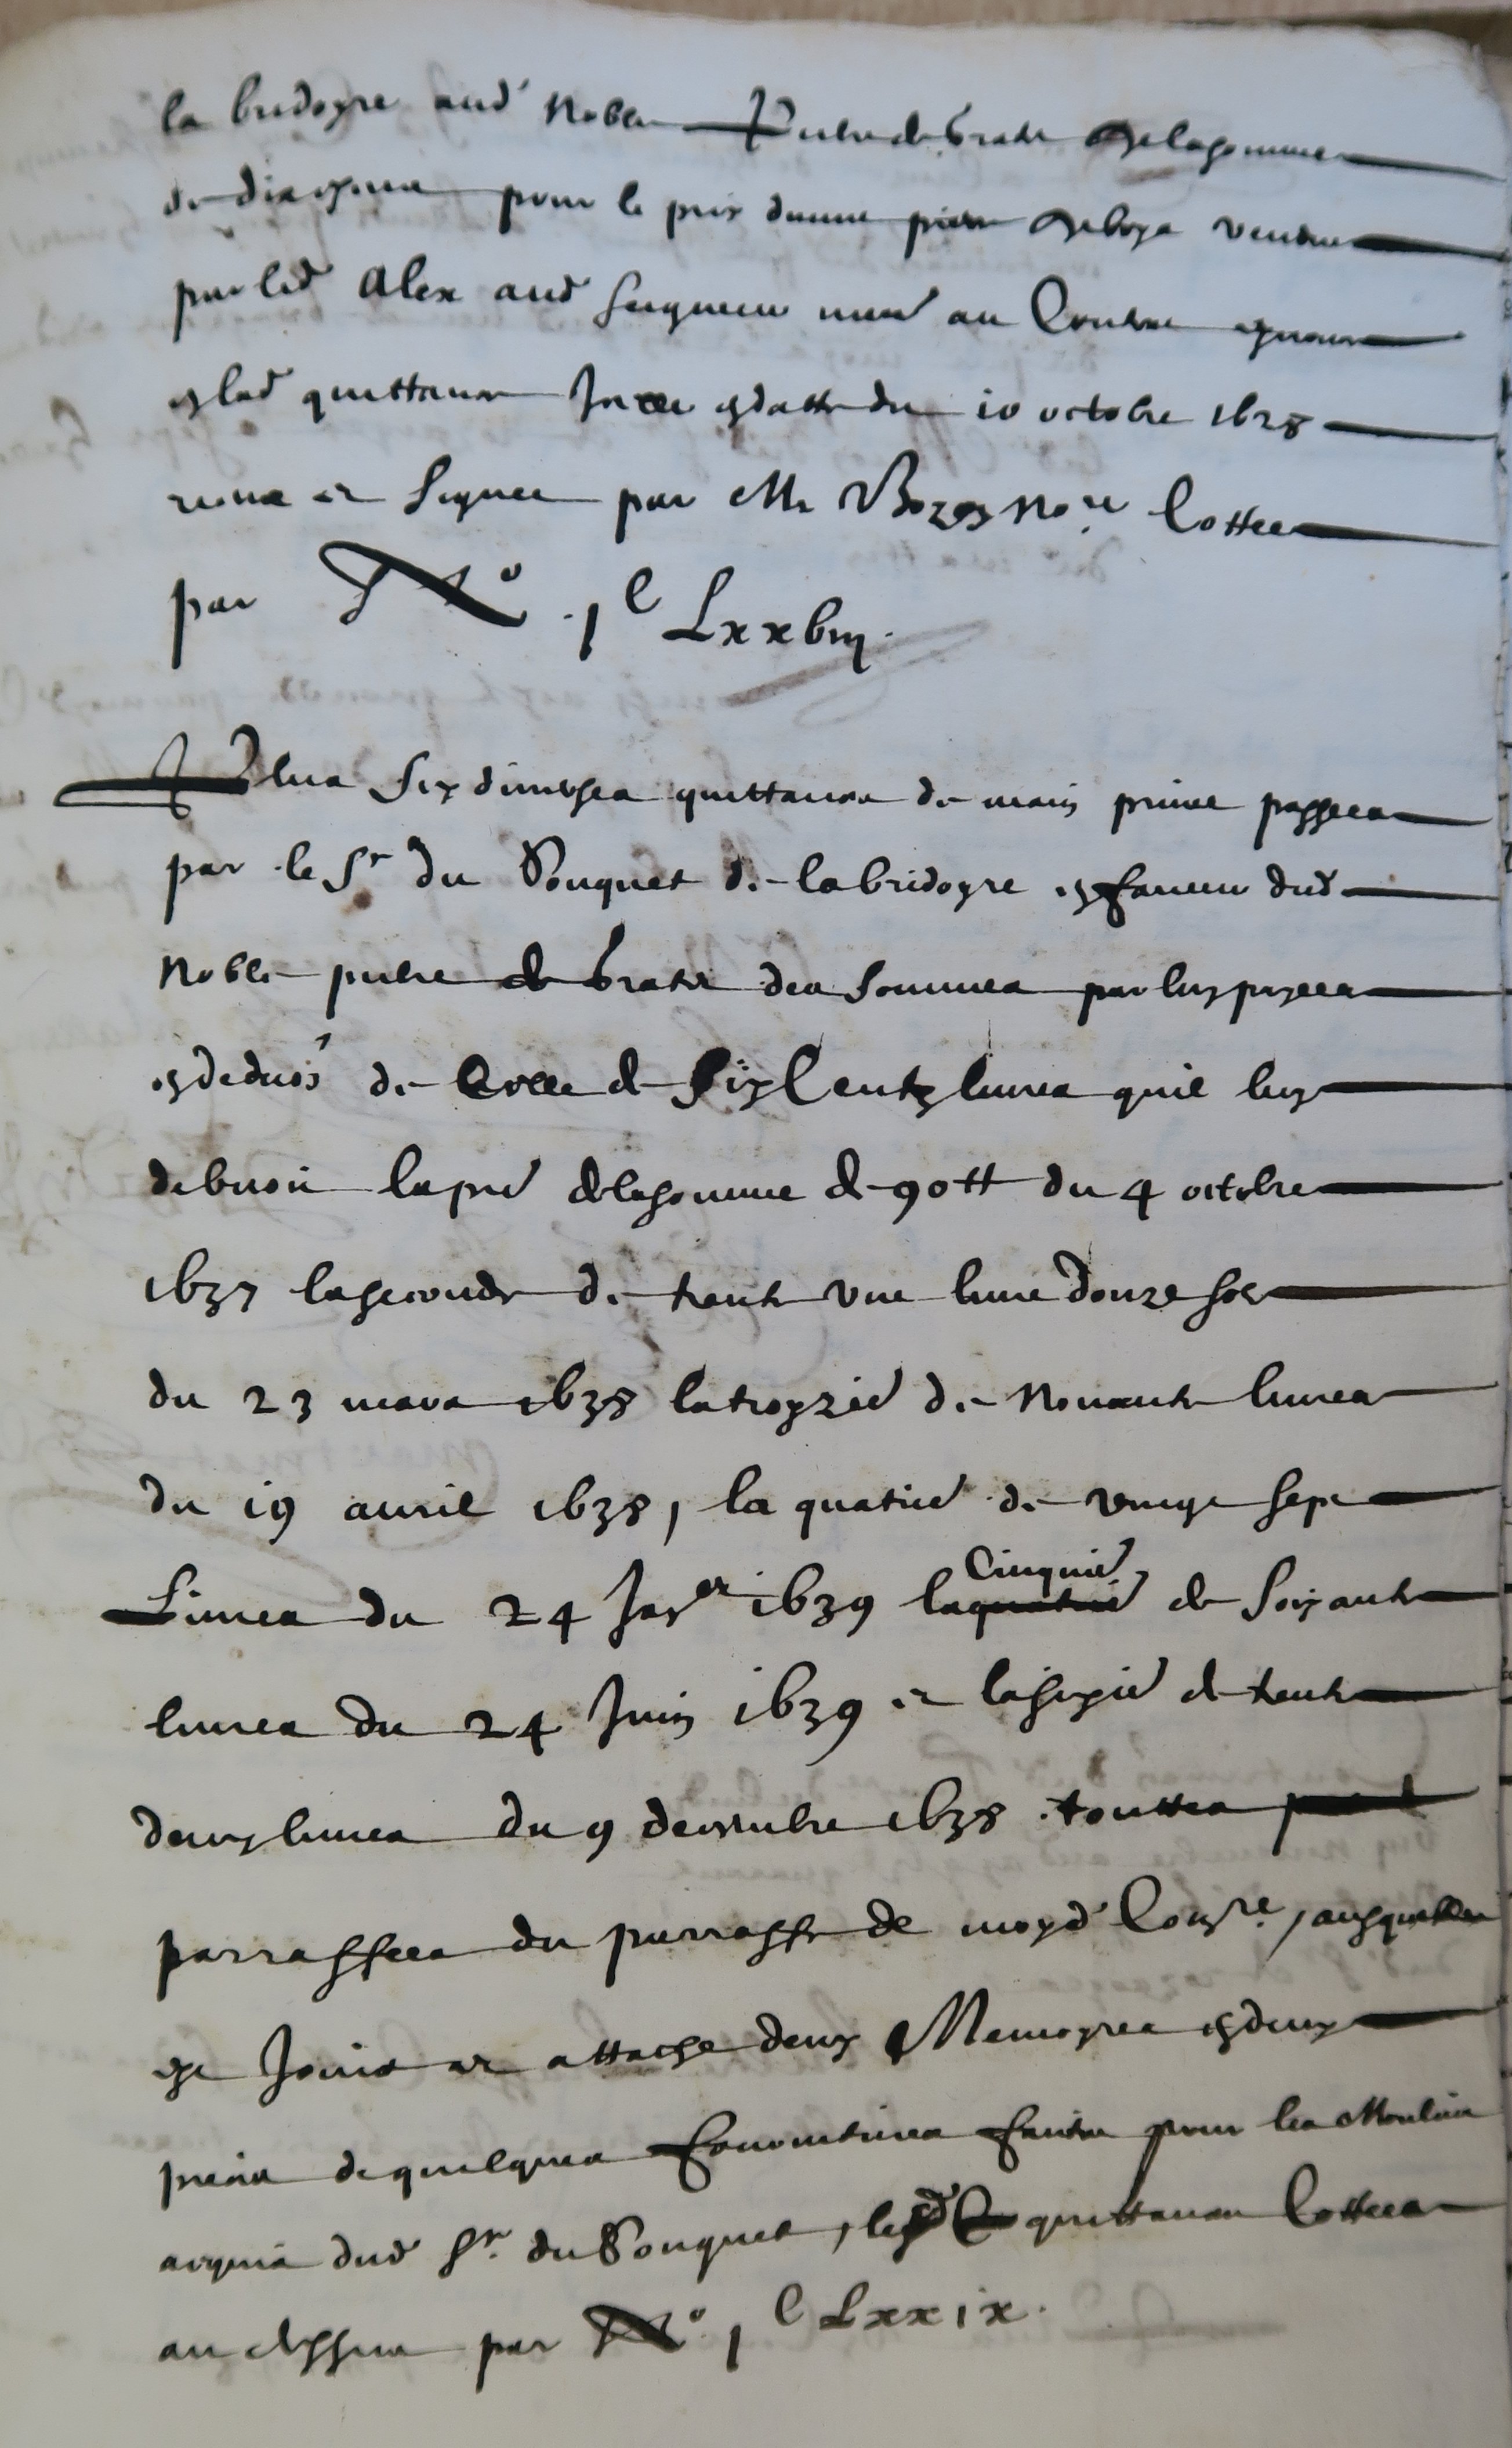 la bridoyre aud' Noble Pierre de bratz de la somme
de dix escus pour le prix dune piece de boys vendue
par led' Alex aud' seigneur men' au Contract enonce
en lad' quittance Icelle en datte du 10 octobre 1628
receue et signee par Me Bozon No.re Cottee
par N° .1 C Lxxbiij.
Plus six diverses quittances de main privee passees
par le Sr du Pouquet de labridoyre en faveur dud'
Noble pierre de bratz des sommes par luy payees
en deduon' de Celle de Six Centz livres quil luy
debvoit la pre' de la somme de 90 tt du 4 octobre
1637 la seconde de trente une livre douze solz
du 23 mars 1638 la troyzie' de Nonante livres
du 19 avril 1638, la quatrie' de vingt sept
Livres du 24 Janer 1639 la quatrie' Cinquie' de soixante
livres du 24 Juin 1639 et la sixie' de trente
deux livres du 9 decembre 1638 touttes
parraffees du parraffe de moyd' Comre, ausquelles
est Joinct et attache deux Memoyres en deux
pieces de quelques fournitures faictes pour les Moulins
acquis dud' Sr. du Pouquet, lesd' quittances Cottees
au dessus par N° 1 C Lxxix.